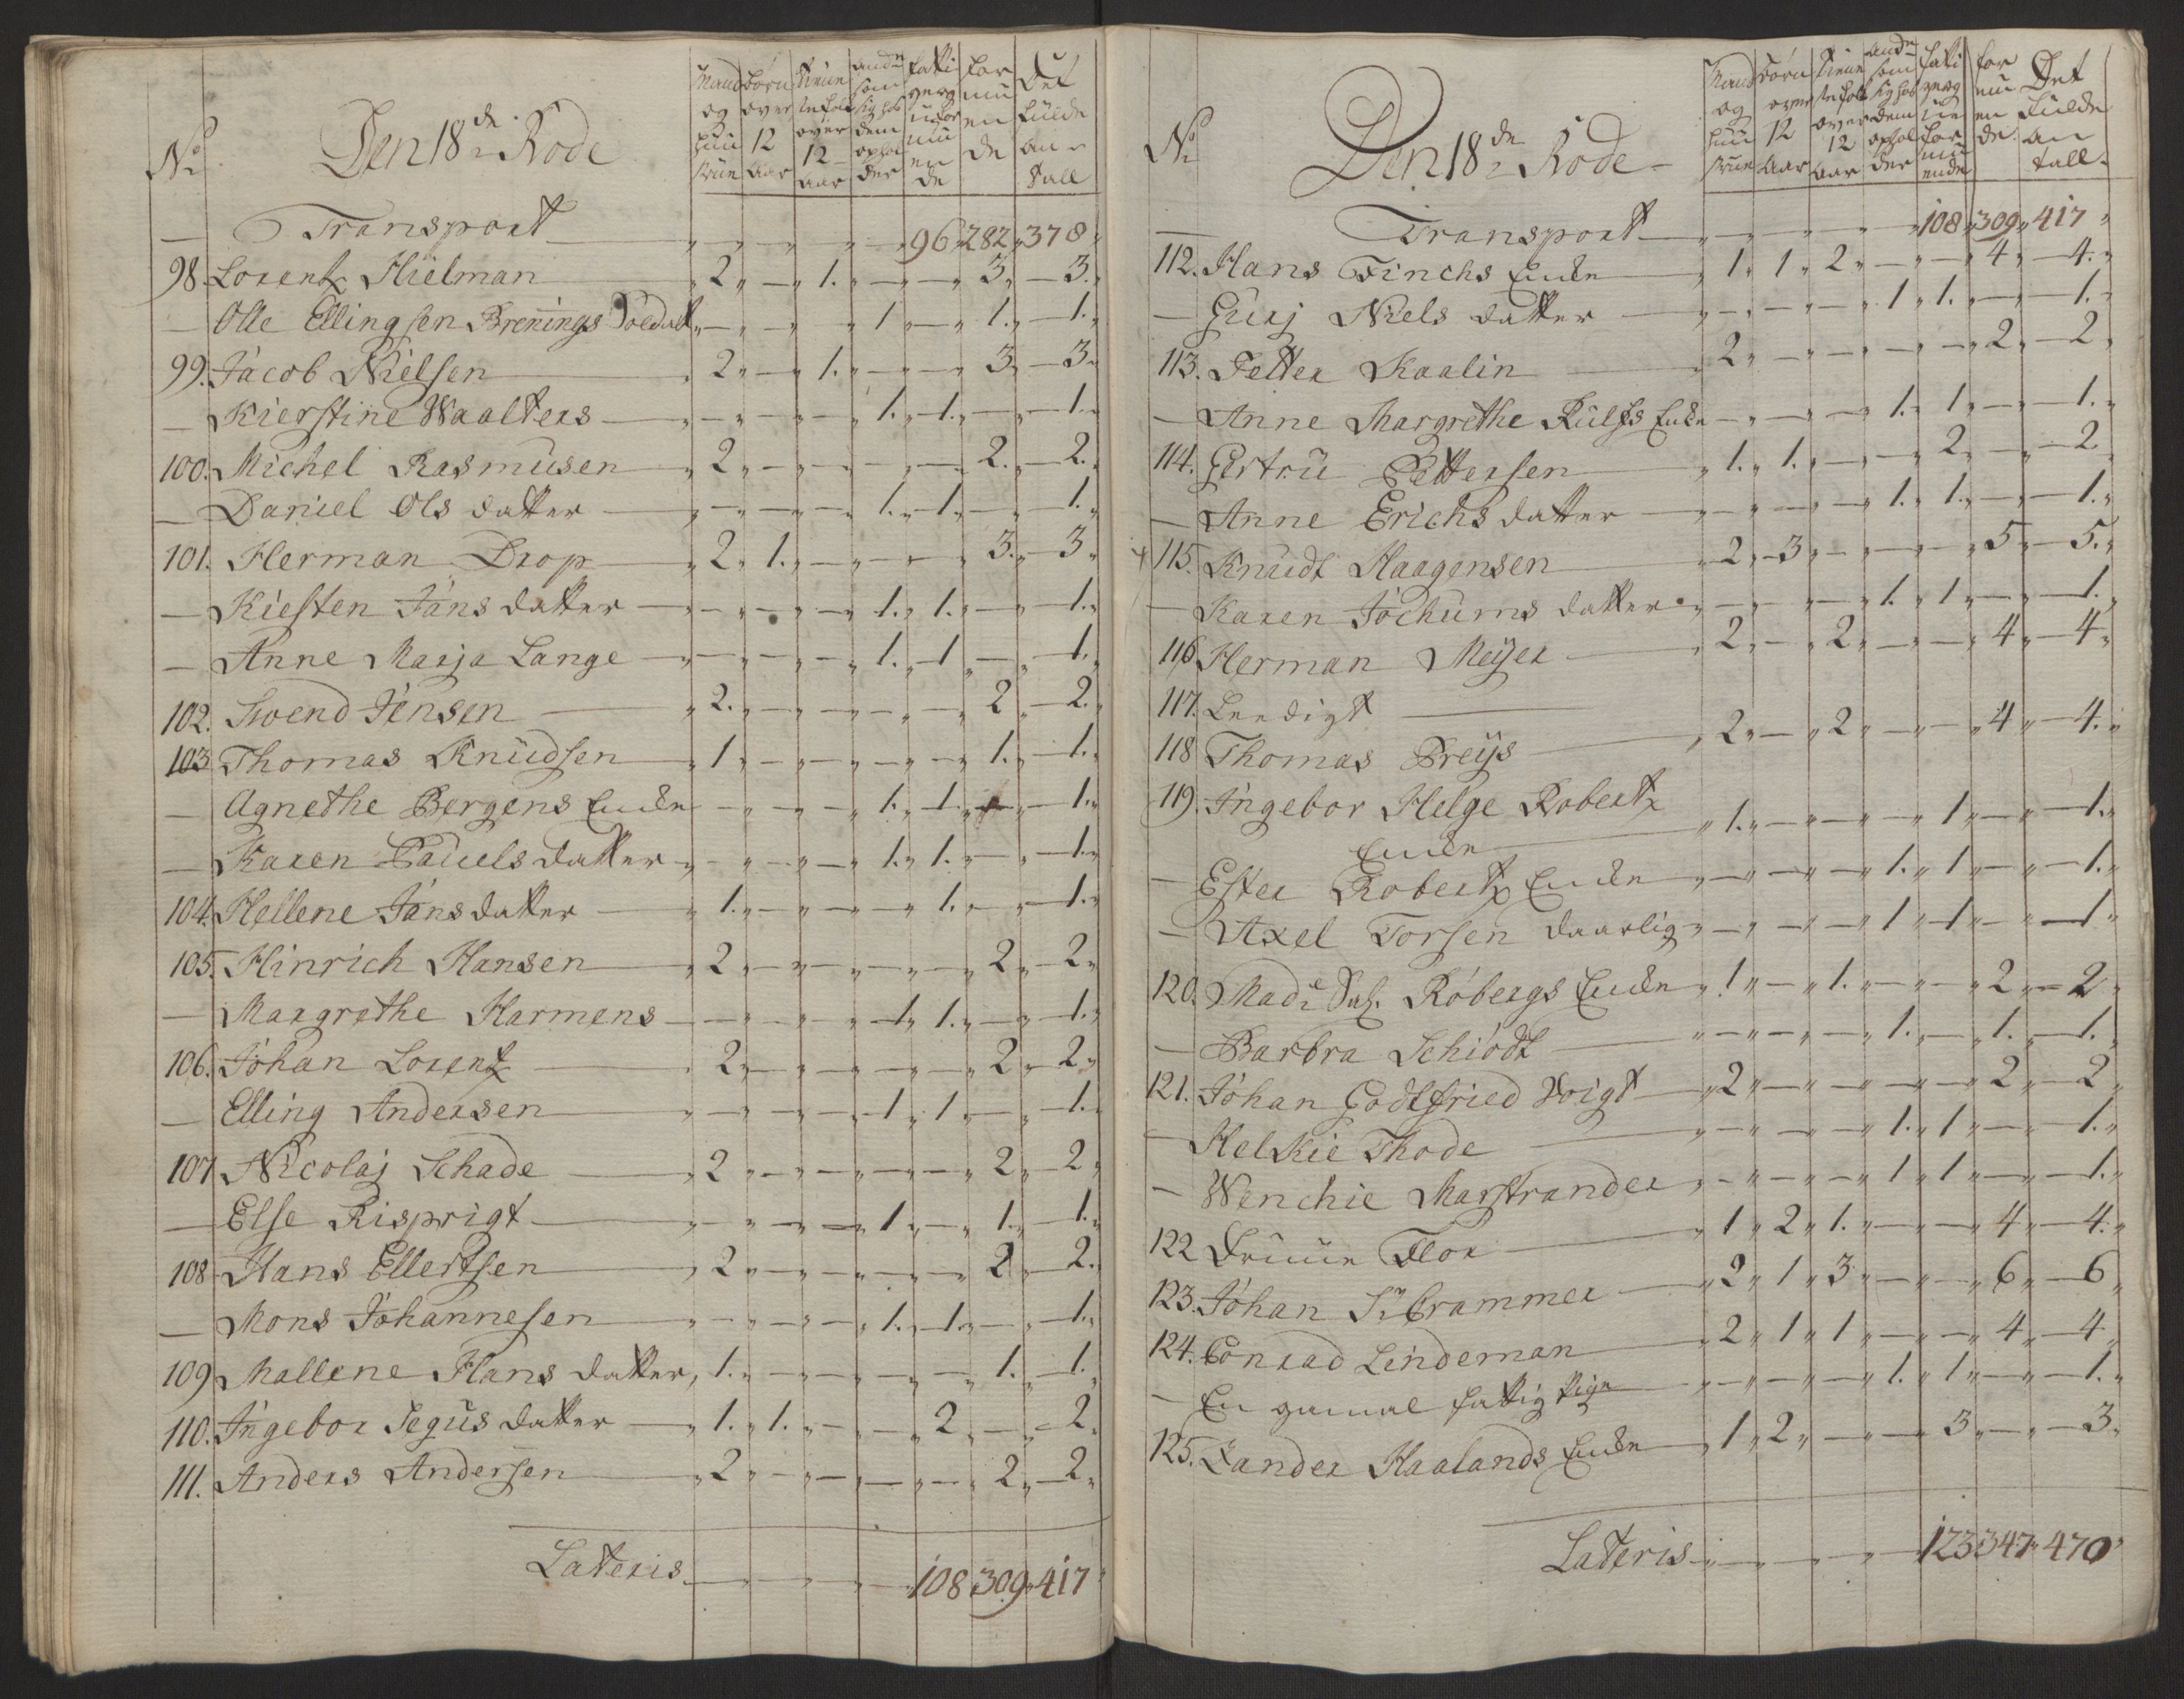 No
Den 18de Rode
Mand og huustrue
børn over 12 Aar
tienestefolk over 12 Aar
andre som sig hos dem opholder
fattige og uformuende
formuende
Det fulde antall
Transport " " " " 96 " 282 " 378 "
98. Lorentz Hielman " 2 " — " 1. " — " — " 3 " — 3. "
— Olle Ellingsen Brenings Soldat " — " — " — " 1 " — " 1. " — 1. "
99. Jacob Nielsen " 2 " — " 1. " — " — " 3 " — 3 "
— Kierstine Waalters " — " — " — " 1. " 1. " — " — 1. "
100. Michel Rasmusen " 2 " — " — " — " — " 2. " — 2. "
— Daniel Ols datter " — " — " — " 1. " 1. " — " — 1. "
101. Herman Drop " 2 " 1. " — " — " — " 3. " — 3 "
— Kiesten Jans datter " — " — " — " 1. " 1. " — " — 1. "
— Anne Marja Lange " — " — " — " 1. " 1 " — " — 1. "
102. Swend Jensen " 2. " — " — " — " — " 2 " — 2. "
103 Thomas Knudsen " 1 " — " — " — " — " 1. " — 1. "
— Agnethe Bergens Encke " — " — " — " 1. " 1. " — " — 1. "
— Karen Pauels datter " — " — " — " 1. " 1. " — " — 1. "
104. Hellene Jans datter " 1. " — " — " — " 1. " — " — 1. "
105. Hinrich Hansen " 2 " — " — " — " — " 2 " — 2 "
— Margrethe Harmens " — " — " — " 1 " 1. " — " — 1. "
106. Johan Lorentz " 2 " — " — " — " — " 2 " — 2 "
— Elling Andersen " — " — " — " 1 " 1. " — " — 1. "
107 Nicolaj Schade " 2 " — " — " — " — " 2 " — 2 "
— Else Risprigt " — " — " — " 1 " — " 1. " — 1. "
108 Hans Ellertsen " 2 " — " — " — " — " 2 " — 2. "
— Mons Johannesen " — " — " — " 1. " 1. " — " — 1. "
109 Mallene Hans datter " 1. " — " — " — " — " 1. " — 1. "
110. Ingebor Segus datter " 1. " 1. " — " — " 2 " — " — 2 "
111. Anders Andersen " 2 " — " — " — " — " 2 " — 2 "
Lateris " " " " 108 " 309 " 417 "
No
Den 18de Rode
Mand og huustrue
børn over 12 Aar
tienestefolk over 12 Aar
andre som sig hos dem opholder
fattige og uformuende
formuende
Det fulde antall
Transport " " " " 108 " 309 " 417 "
112. Hans Finchs Encke " 1 " 1 " 2 " — " — " 4 " — 4. "
— Gurj Niels datter " — " — " — " 1 " 1. " — " — 1. "
113. Petter Kaalin " 2 " — " — " — " — " 2 " — 2 "
— Anne Margrethe Rulfs Encke " — " — " — " 1. " 1 " — " — 1. "
114. Gertru Pettersen " 1. " 1. " — " — " 2 " — " — 2
— Anne Erichs datter " — " — " — " 1. " 1. " — " — 1. "
115. Knudt Haagensen " 2 " 3 " — " — " — " 5 " — 5. "
— Karen Jochums datter " — " — " — " 1. " 1 " — " — 1. "
116 Herman Meyer " 2 " — " 2 " — " — " 4 " — 4 "
117. Leedigt
118 Thomas Preys " 2 " — " 2 " — " — " 4 " — 4. "
119. Ingebor Helge Robertz
Encke " 1. " — " — " — " 1 " — " — 1. "
— Ester Robertz Encke " — " — " — " 1. " 1 " — " — 1. "
— Axel Torsen daarlig " — " — " — " 1 " 1 " — " — 1 "
120. Made Sal. Röbergs Encke " 1 " — " 1. " — " — " 2 " — 2 "
— Barbra Schiödt " — " — " — " 1. " — " 1. " — 1. "
121. Johan Godtfried Voigt " 2 " — " — " — " — " 2 " — 2 "
— Helkie Thode " — " — " — " 1. " 1 " — " — 1. "
— Wenchie Marstrander " — " — " — " 1 " 1 " — " — 1. "
122 Fruue Flor " 1 " 2 " 1. " — " — " 4 " — 4. "
123. Johan Sr Crammer " 2 " 1 " 3 " — " — " 6 " — 6 "
124. Conrad Lindeman " 2 " 1 " 1 " — " — " 4 " — 4 "
— En gamal fattig pige " — " — " — " 1. " 1 " — " — 1. "
125. Zander Haalands Encke " 1 " 2 " — " — " 3 " — " — 3 "
Lateris " " " " 123 347 " 470 "